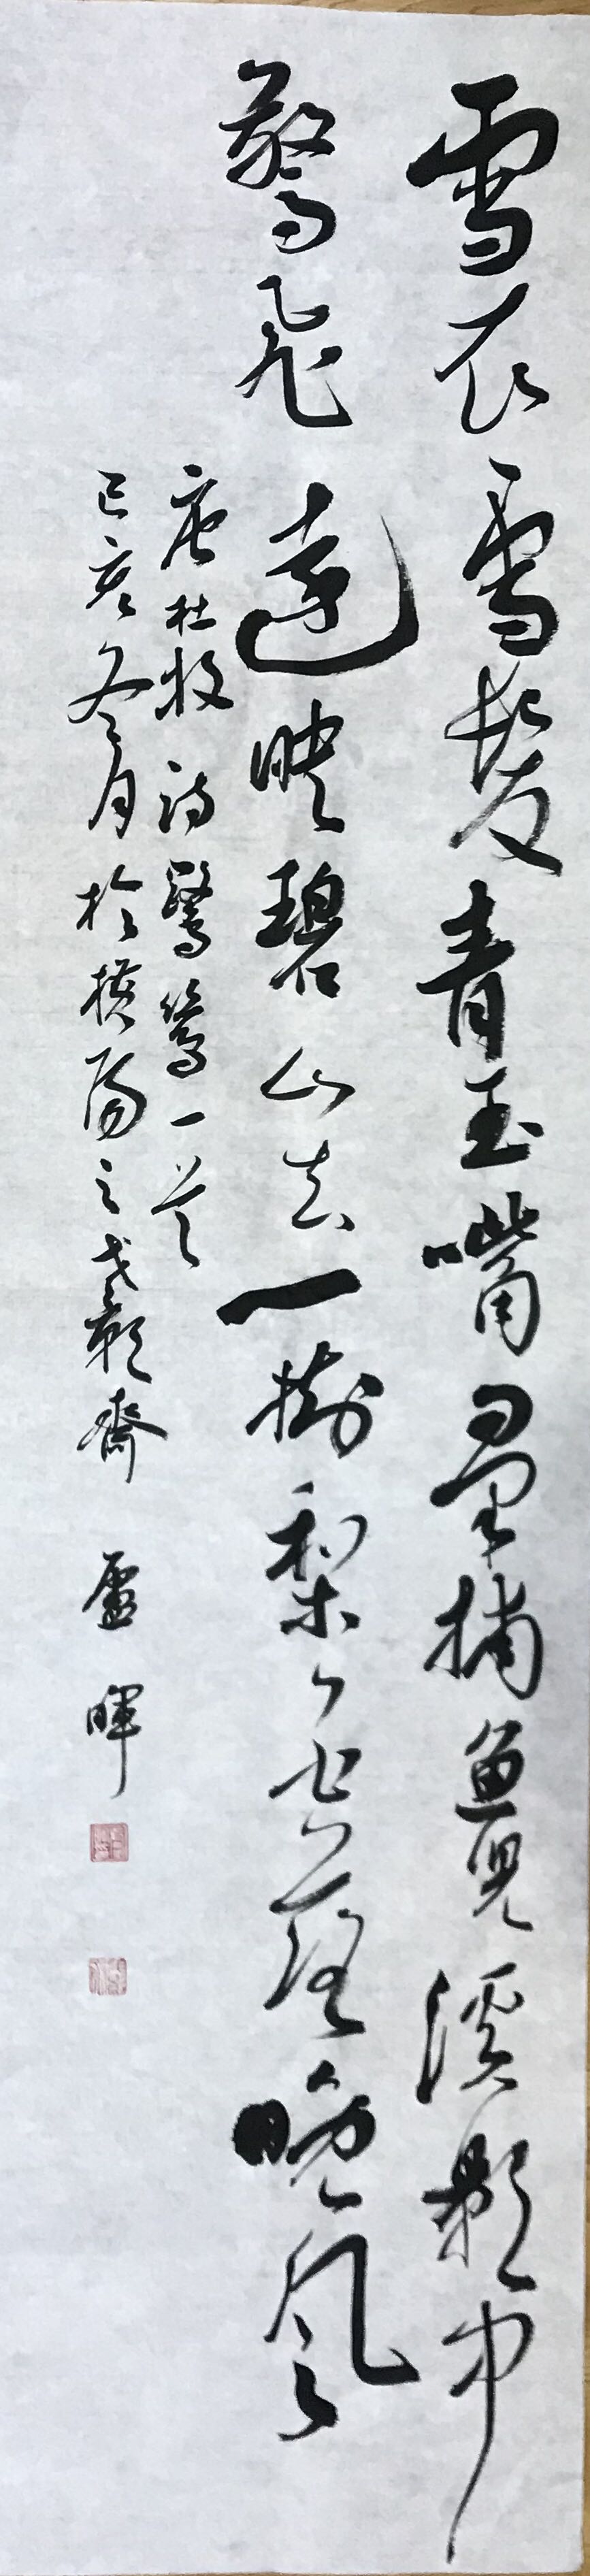 雪衣雪髮青玉嘴羣捕魚兒溪影中
驚飛遠映碧山去一樹梨花落晚風
唐杜牧詩鷺鷥一首
己亥冬月於橫陽之弌齋 盧暉